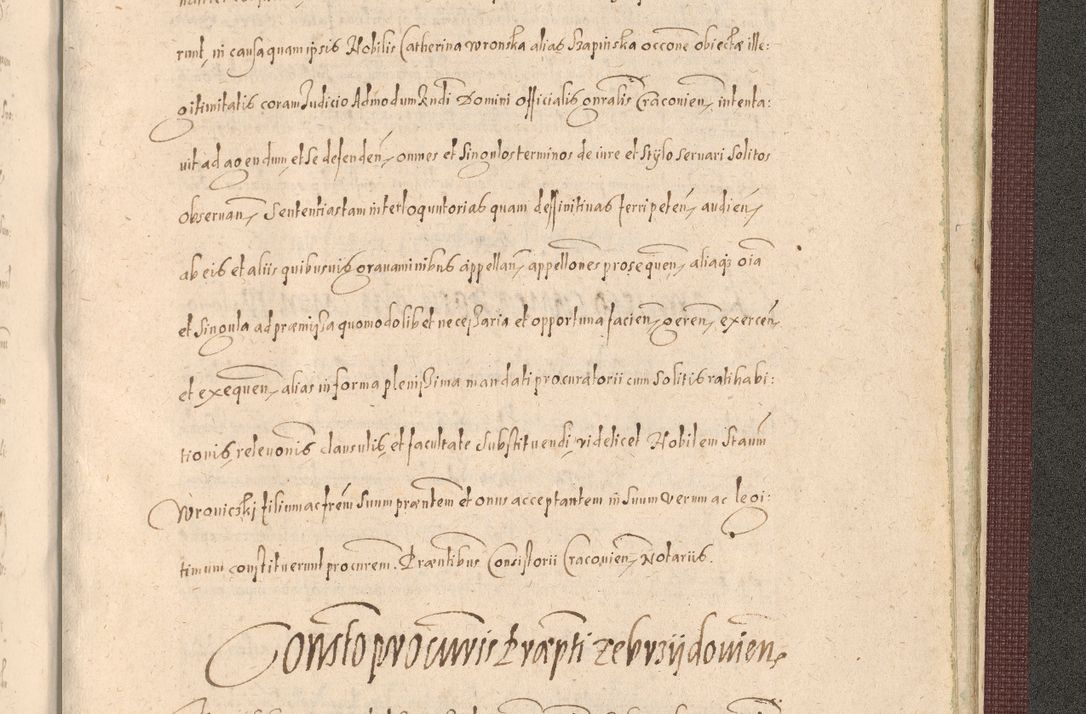 runt, in causa quam ipsis Nobilis Catherina Wronska alias Szapinska occone obiectæ ille:
gitimitatis coram Iudicio Admodum Rndi Domini officialis gnralis Cracouien, intenta:
uit ad agendum, et se defenden, omnes et singulos terminos de iure et stylo seruari solitos
obseruan, Sententias tam interloquutorias quam deffinitiuas ferri peten, audien,
ab eis et aliis quibusuis grauaminibus appellan, appellones prosequen, aliaq; oia
et singula ad præmissa quomodolibet necessaria et opportuna facien, geren, exercen,
et exequen, alias in forma plenissima mandati procuratorii cum solitis ratihabi:
tionis, releuonis clausulis, et facultate substituendi, videlicet Nobilem Staum
Wroniczki filium ac frem suum præntem et onus acceptantem in suum verum ac legi:
timum constituerunt procurem. Præntibus Consistorii Cracouien, Notariis.
Consto procuris Præpti Zebrzijdouien,